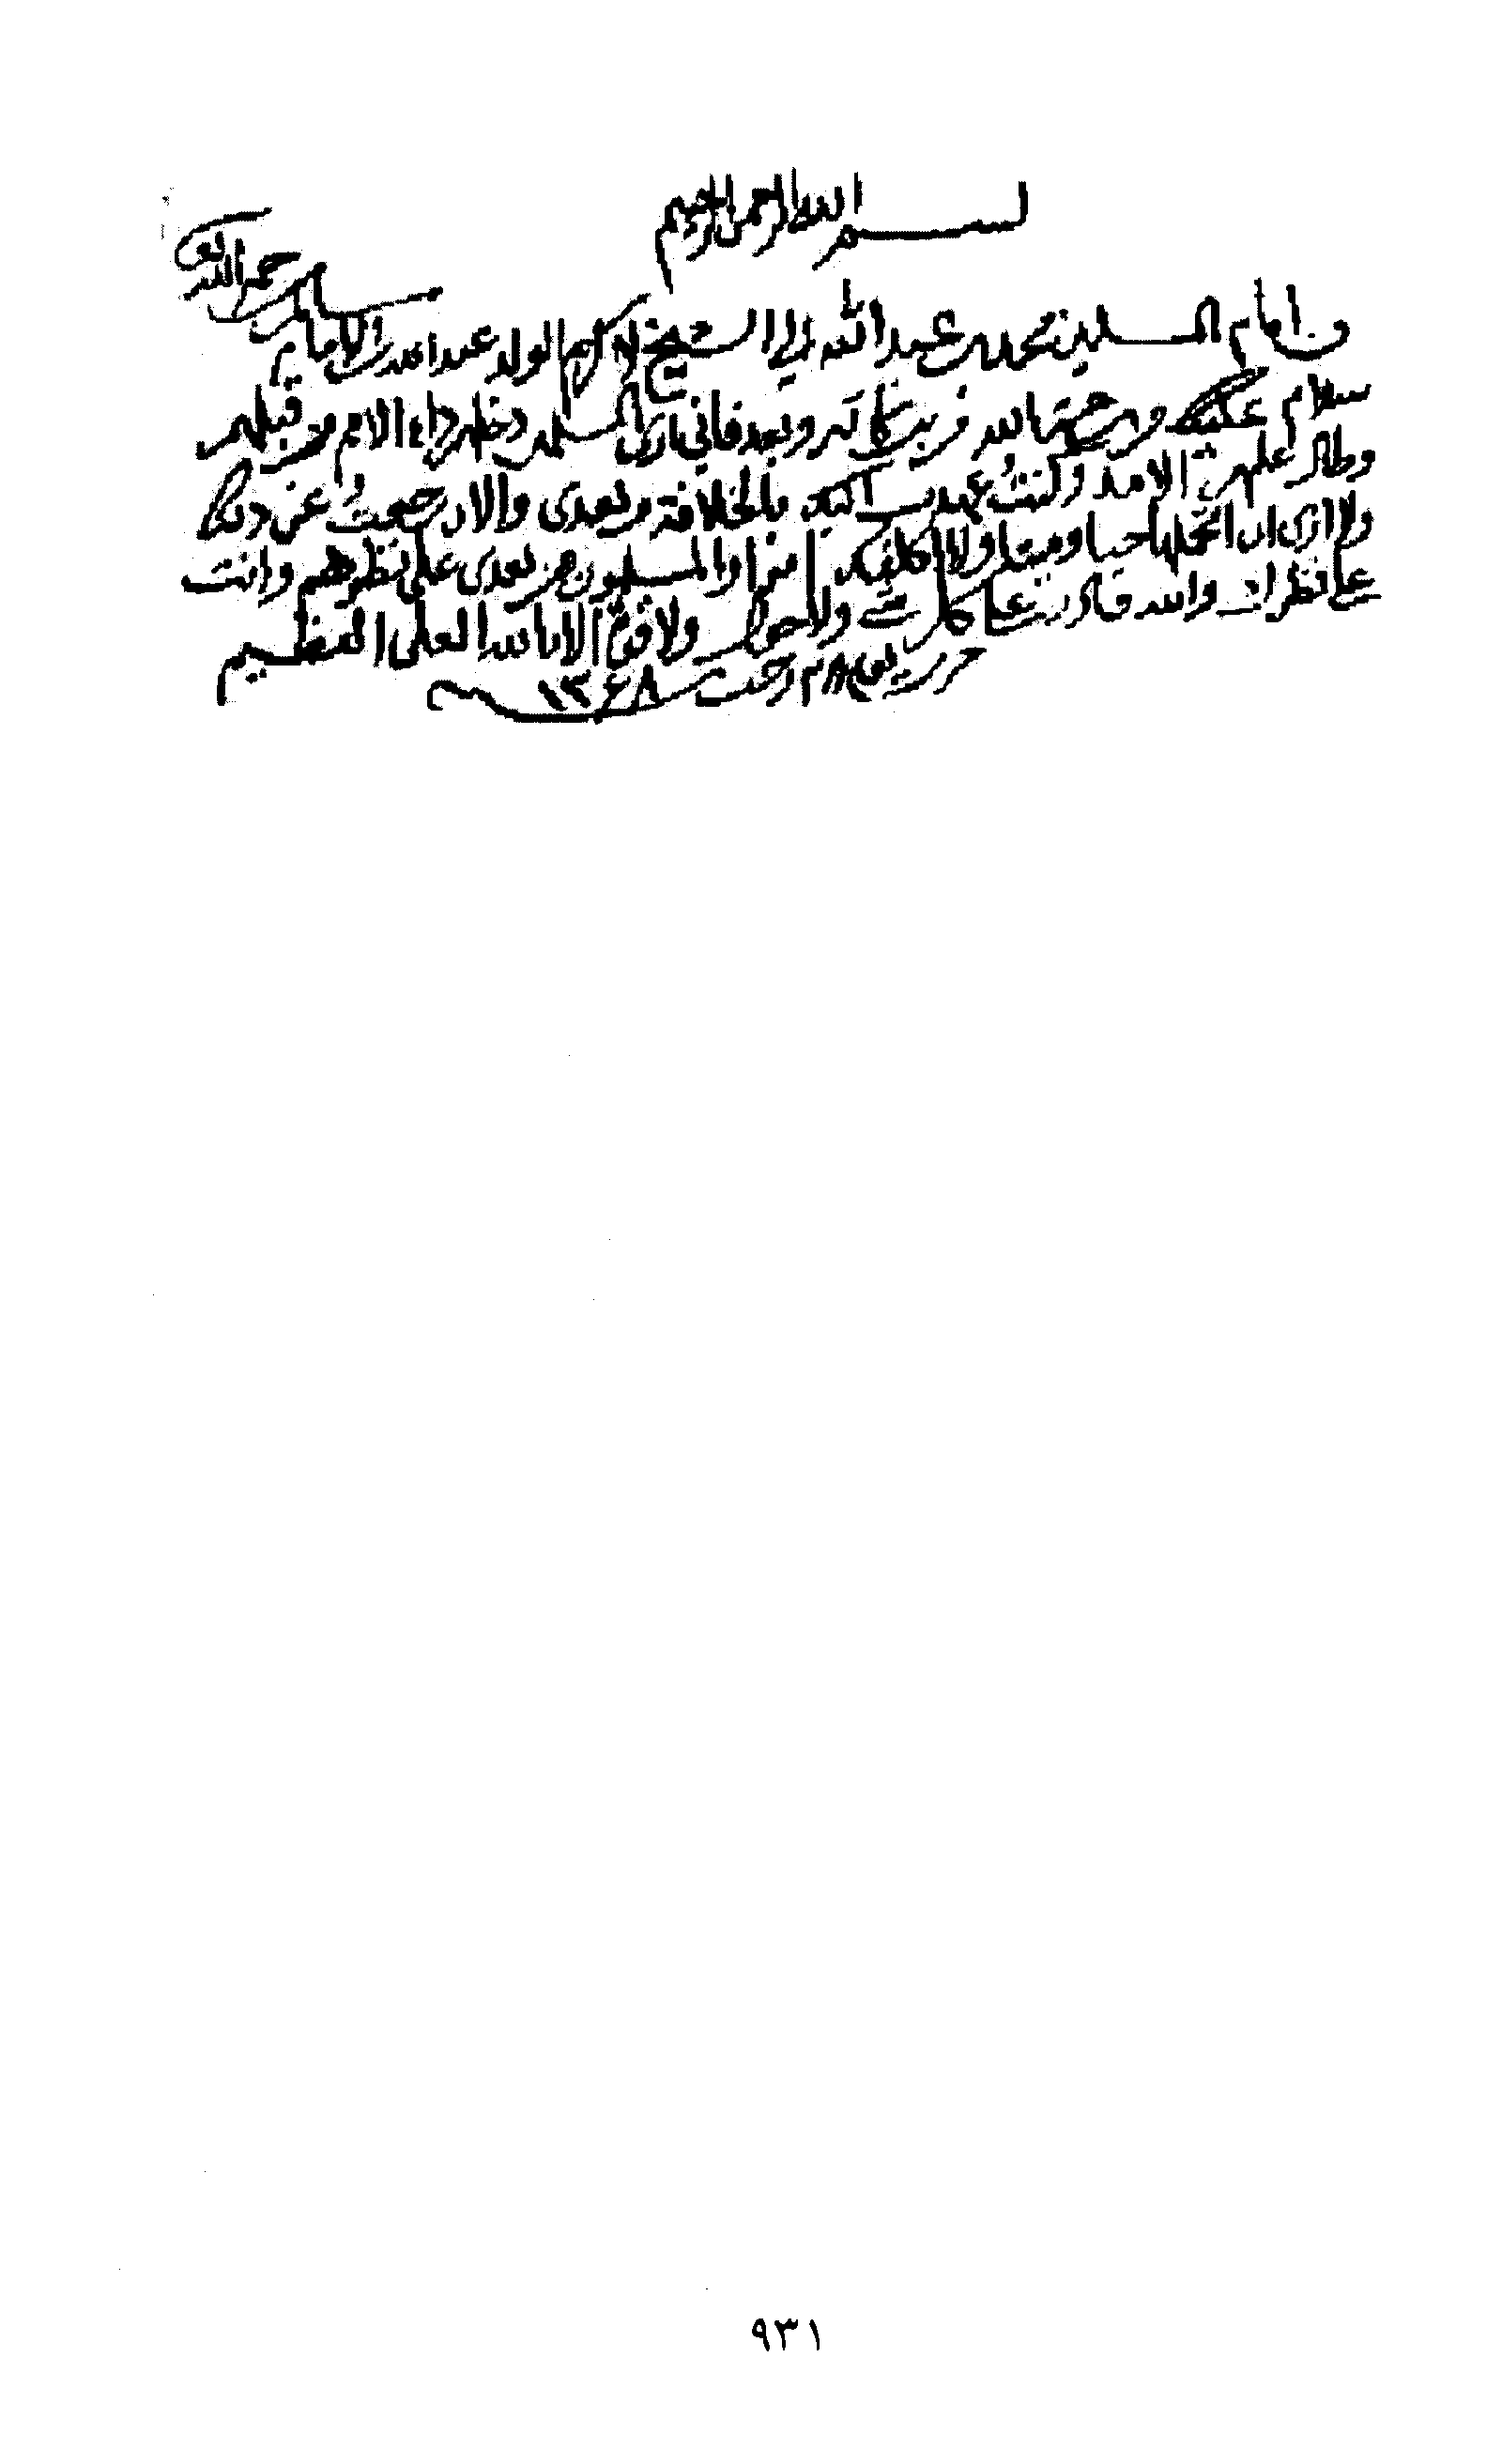 بسم الله الرحمن الرحيم
من امام المسلمين محمد بن عبدالله الى الشيخ الاكرم الولد عبدالله بن الامام سالم رحمه الله
سلام عليك ورحمة الله وبركاته وبعد فاني ارى المسلمين دخلهم داء الامم من قبلهم
وطال عليهم الامد وكنت عهدت اليك بالخلافة من بعدي والان رجعت عن ذلك
ولا ارى ان اتحملها حيا وميتا ولا اكلفك امرا والمسلمون من بعدي على نظرهم وانت
على نظرك والله قادر على كل شيء ولا حول ولا قوة الا بالله العلي العظيم
حرر يوم ٢٨ رجب ١٣٦٨
٩٣١